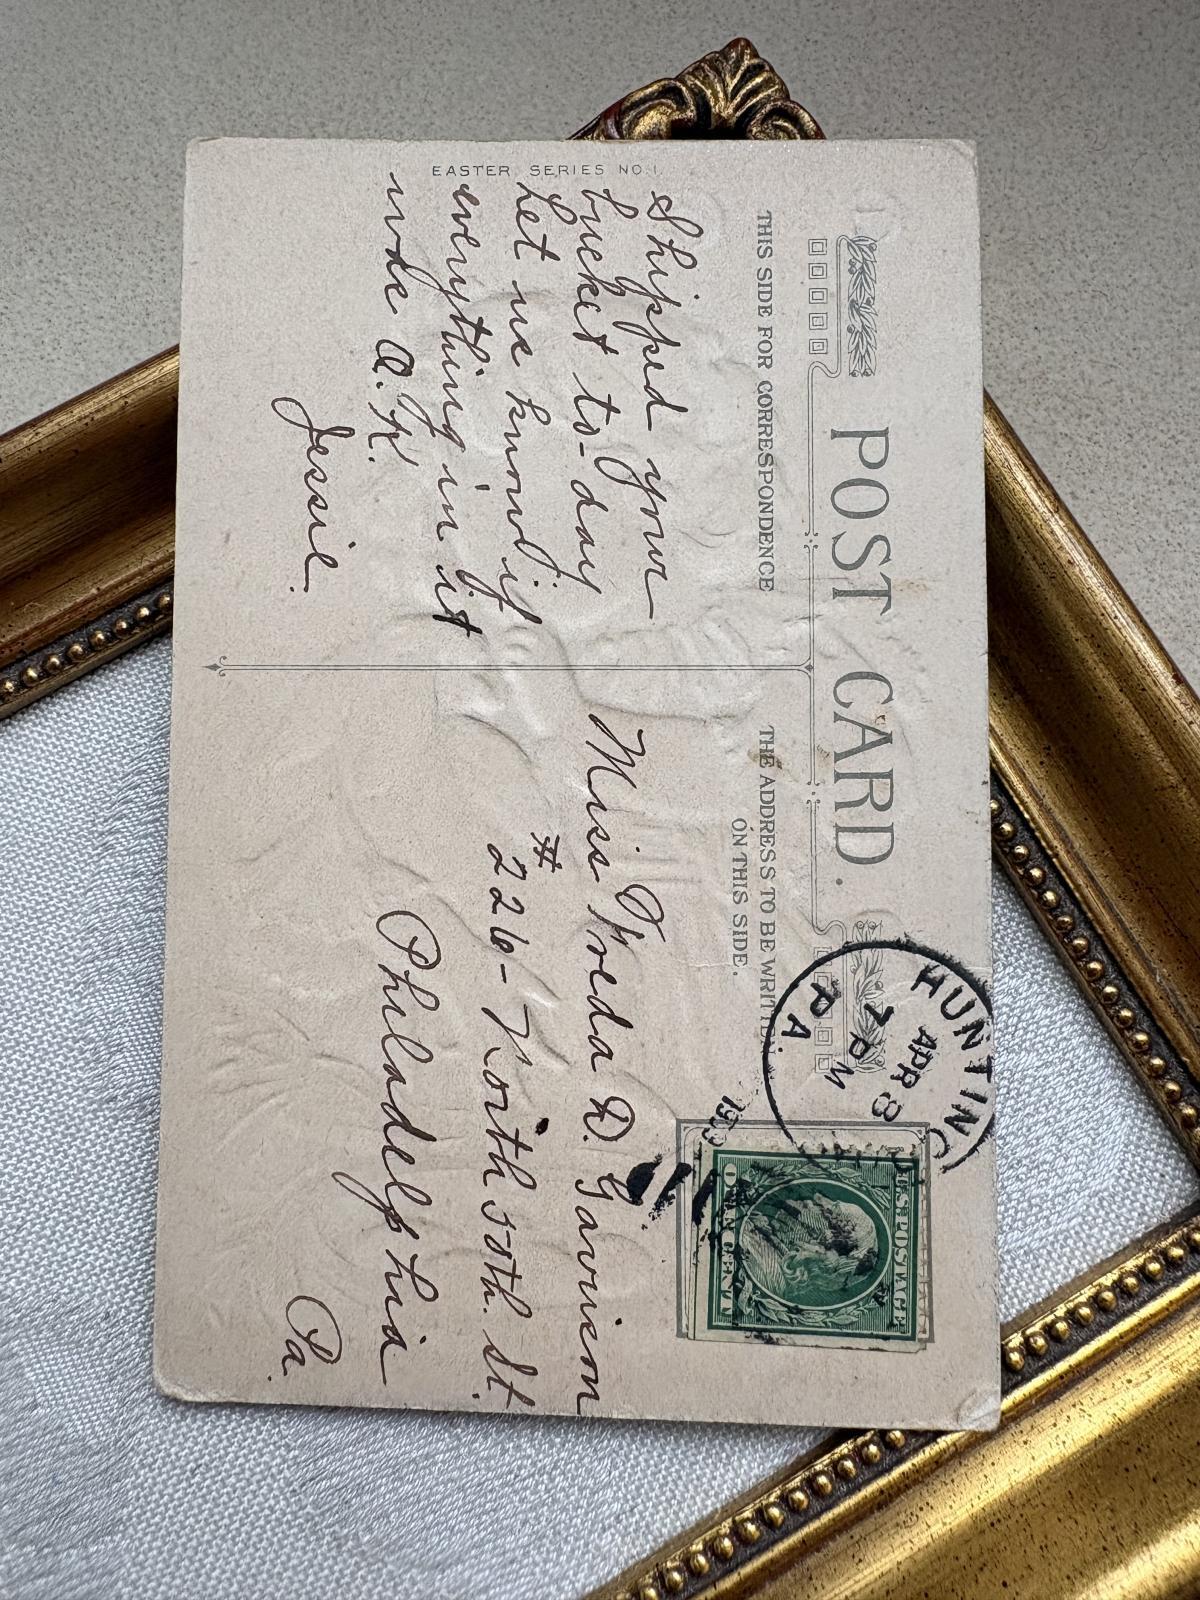 EASTER SERIES NO. 1.
POST CARD.
THIS SIDE FOR CORRESPONDENCE
Shipped your
bucket to-day
Let me know if
everything in it
was O.K.
Jessie.
THE ADDRESS TO BE WRITTEN
ON THIS SIDE.
HUNTING
APR 8
7 PM
PA
U.S. POSTAGE
ONE CENT
Miss Freda D. Garrison
# 226 - North 55th. St.
Philadelphia
Pa.